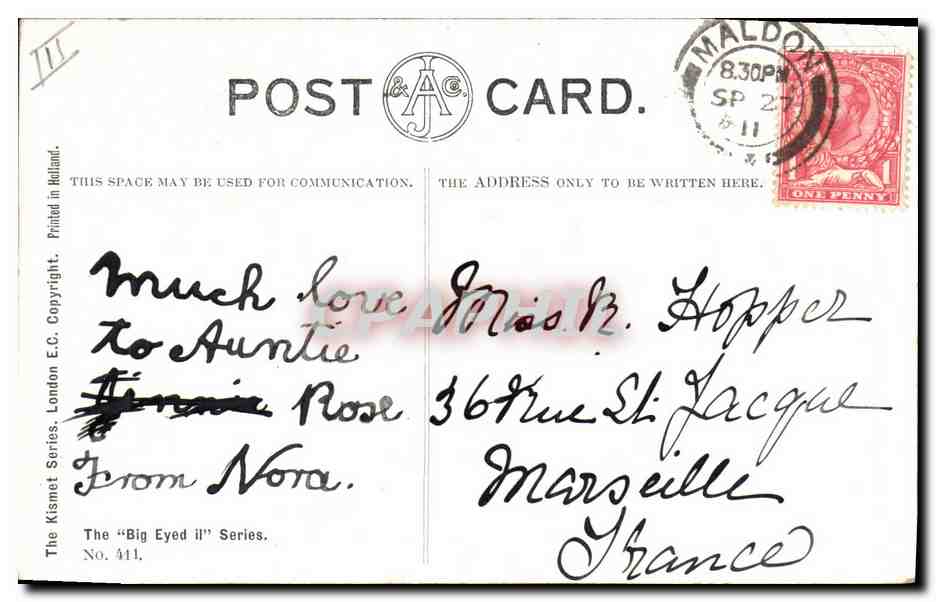 III
POST & JA Co. CARD.
MALDON
8.30PM
SP 27
11
ONE PENNY
1
THIS SPACE MAY BE USED FOR COMMUNICATION.
THE ADDRESS ONLY TO BE WRITTEN HERE.
Much love
to Auntie
Rose
From Nora.
Miss R. Hopper
36 Rue St. Jacque
Marseille
France
The "Big Eyed il" Series.
No. 411.
The Kismet Series. London E.C. Copyright. Printed in Holland.
CPAPHIL